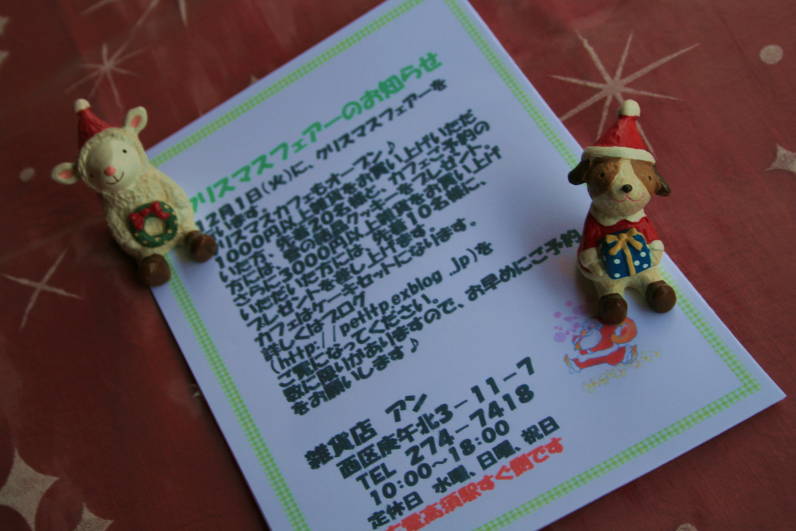 クリスマスフェアーのお知らせ
12月1日(火)に、クリスマスフェアーを
します。
リスマスカフェもオープン♪
1000円以上雑貨をお買い上げいただ
いた方、先着20名様と、カフェご予約の
方には、雪の結晶クッキーをプレゼント。
さらに3000円以上雑貨をお買い上げ
いただいた方には、先着10名様に、
プレゼントをさし上げます。
カフェはケーキセットになります。
詳しくはブログ
(http://petitp.exblog.jp)を
ご覧になってください。
数に限りがありますので、お早めにご予約
をお願いします♪
雑貨店 アン
西区庚午北3-11-7
TEL 274-7418
10:00~18:00
定休日 水曜、日曜、祝日
電高須駅すぐ側です